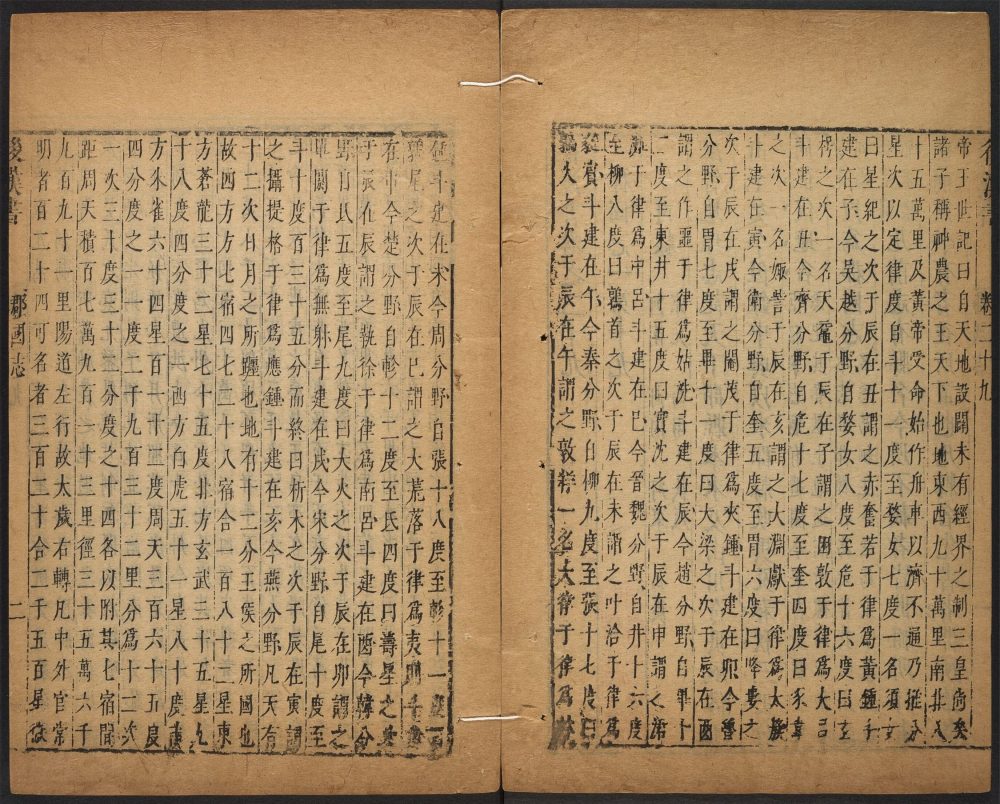 後漢書 卷二十九
帝王世記曰自天地設闢未有經界之制三皇尚矣
諸子稱神農之王天下也地東西九十萬里南北八
十五萬里及黃帝受命始作舟車以濟不通乃推分
星次以定律度自斗十一度至婺女七度一名須女
曰星紀之次于辰在丑謂之赤奮若于律爲黃鍾斗
建在子今吳越分野自婺女八度至危十六度曰玄
枵之次一名天黿于辰在子謂之困敦于律爲大呂
斗建在丑今齊分野自危十七度至奎四度曰豕韋
之次一名娵訾于辰在亥謂之大淵獻于律爲太簇
斗建在寅今衛分野自奎五度至胃六度曰降婁之
次于辰在戌謂之閹茂于律爲夾鍾斗建在卯今魯
分野自胃七度至畢十一度曰大梁之次于辰在酉
謂之作噩于律爲姑洗斗建在辰今趙分野自畢十
二度至東井十五度曰實沈之次于辰在申謂之涒
灘于律爲中呂斗建在巳今晉魏分野自井十六度
至柳八度曰鶉首之次于辰在未謂之叶洽于律爲
蕤賓斗建在午今秦分野自柳九度至張十七度曰
鶉火之次于辰在午謂之敦牂一名大律于律爲林
鍾斗建在未今周分野自張十八度至軫十一度曰
鶉尾之次于辰在巳謂之大荒落于律爲夷則斗建
在申今楚分野自軫十二度至氐四度曰壽星之次
于辰在辰謂之執徐于律爲南呂斗建在酉今韓分
野自氐五度至尾九度曰大火之次于辰在卯謂之
單閼于律爲無射斗建在戌今宋分野自尾十度至
斗十度百三十五分而終曰析木之次于辰在寅謂
之攝提格于律爲應鍾斗建在亥今燕分野凡天有
十二次日月之所躔也地有十二分王侯之所國也
故四方方七宿四七二十八宿合一百八十二星東
方蒼龍三十二星七十五度北方玄武三十五星九
十八度四分度之一西方白虎五十一星八十度南
方朱雀六十四星百一十二度周天三百六十五度
四分度之一一度二千九百三十二里分爲十二次
一次三十度三十二分度之十四各以附其七宿間
距周天積百七萬九百一十三里徑三十五萬六千
九百九十一里陽道左行故太歲右轉凡中外官常
明者百二十四可名者三百二十合二千五百星微
後漢書 郡國志 二